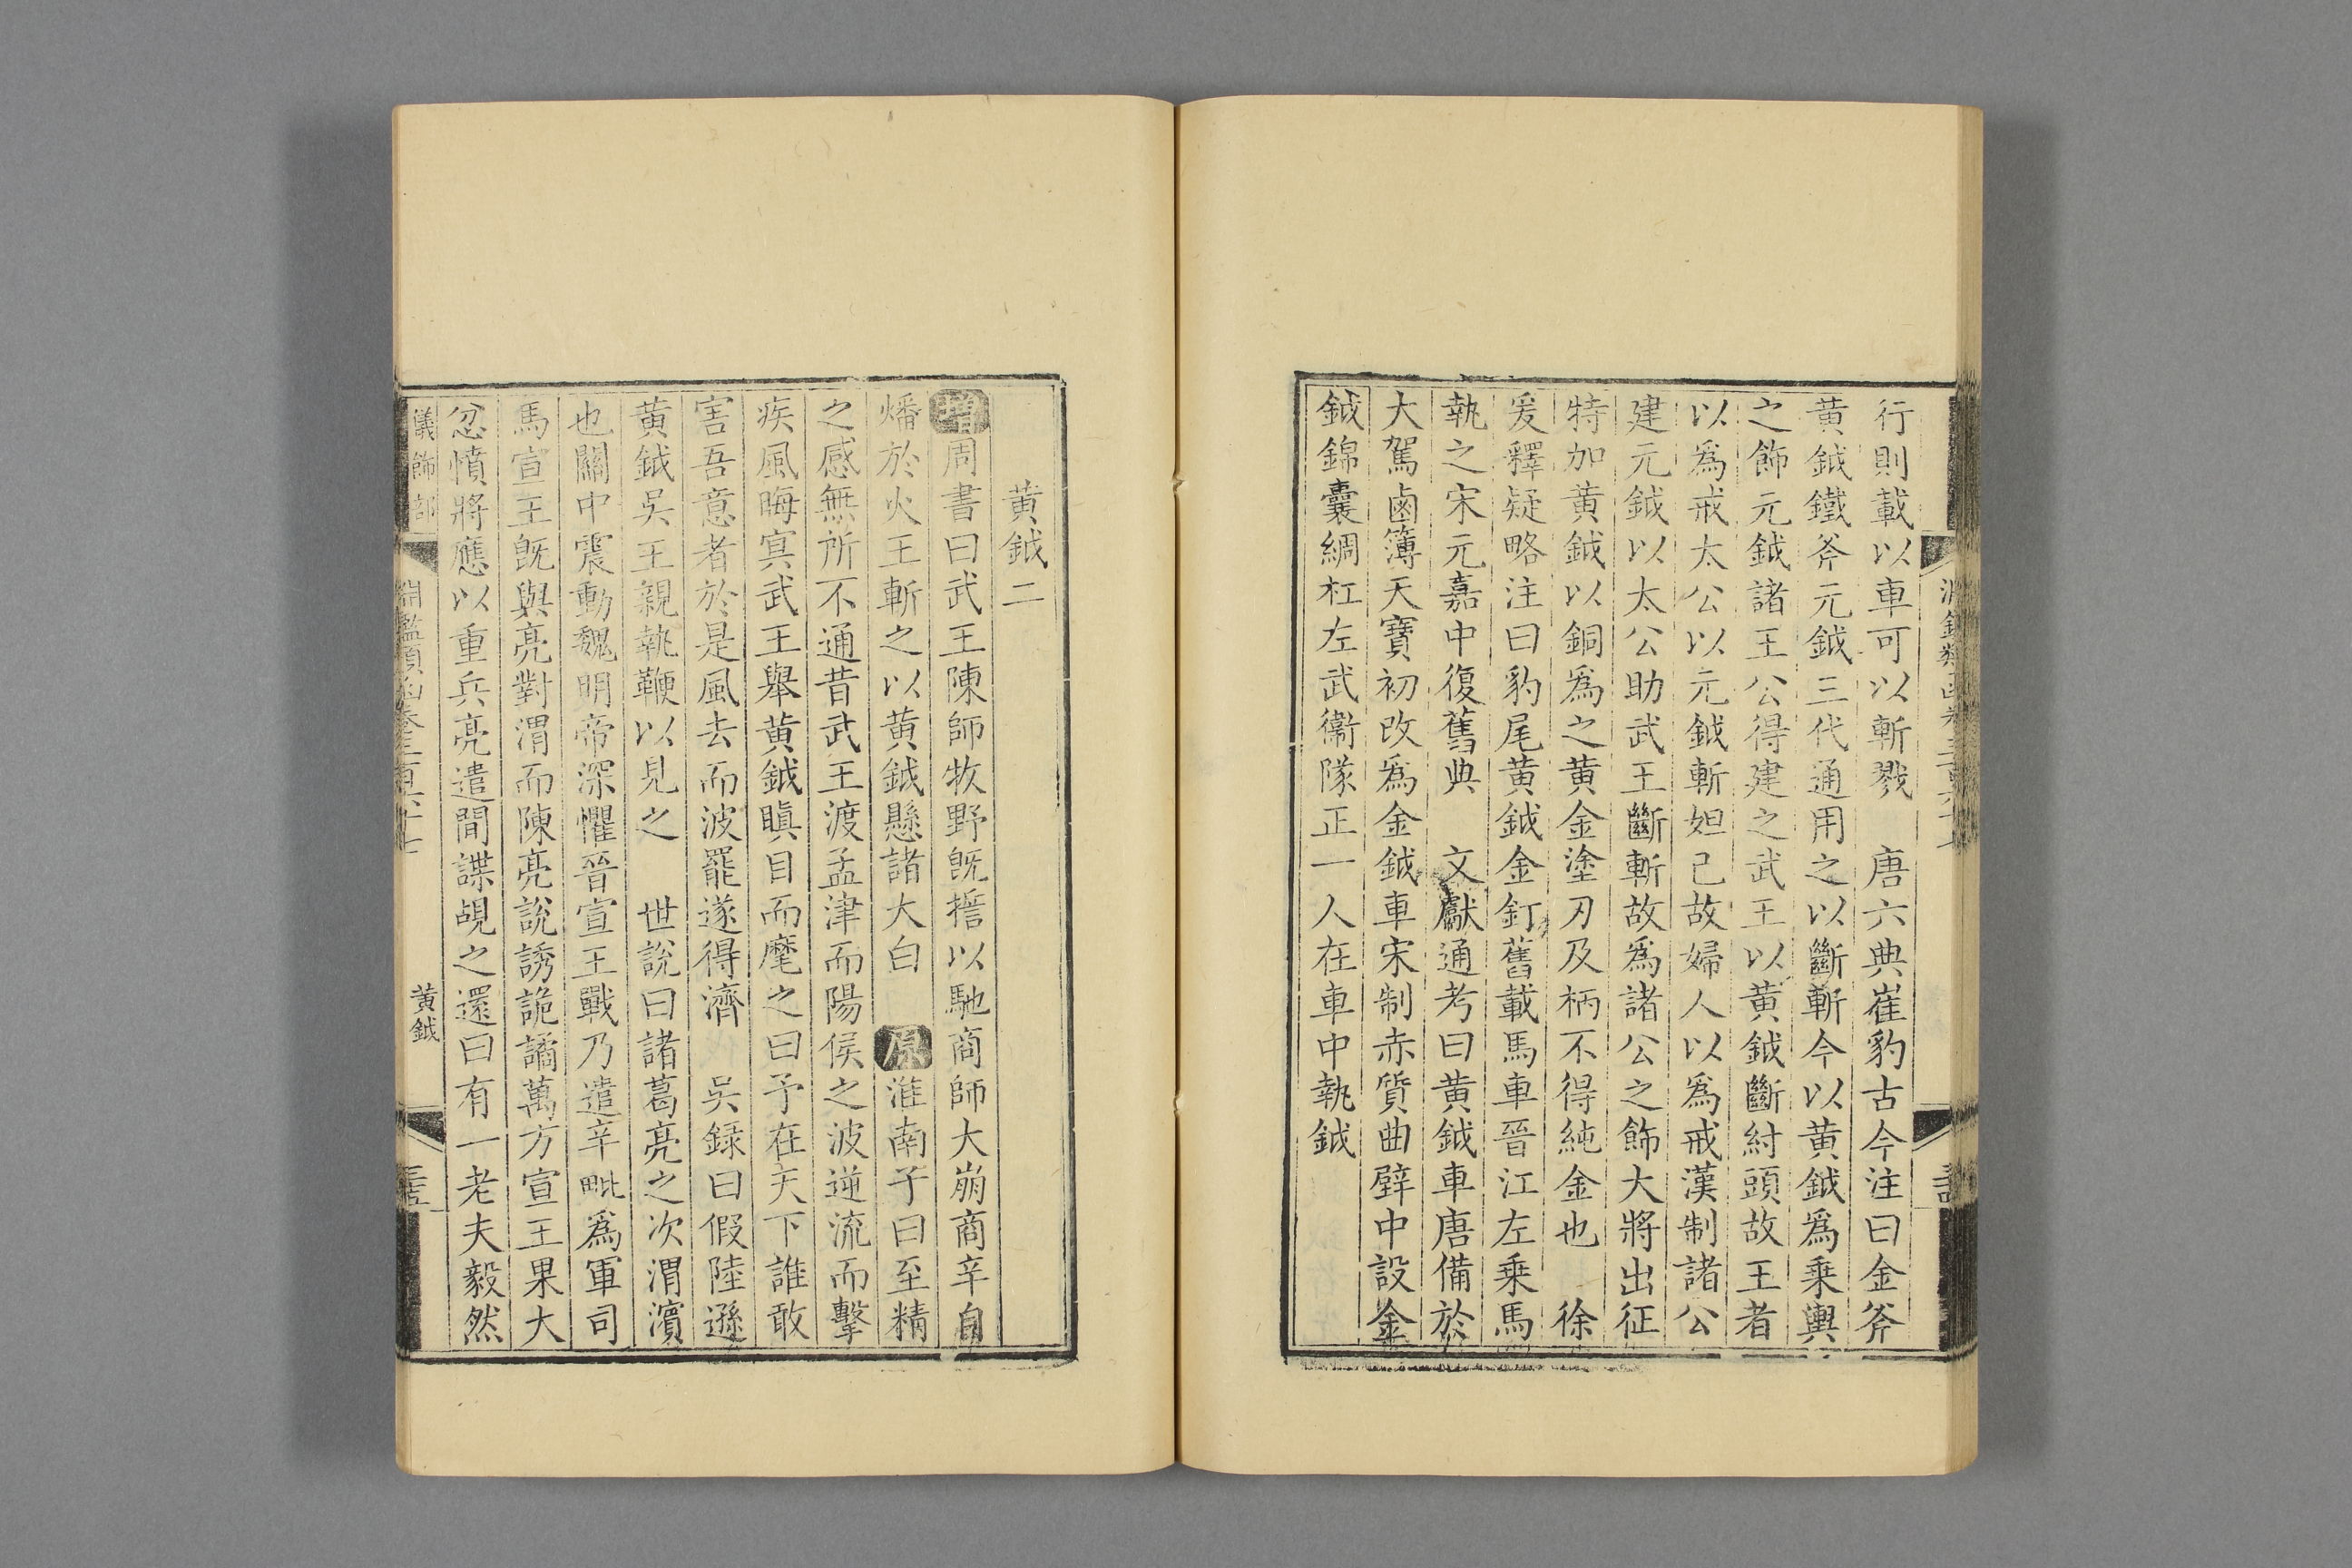 行則載以車可以斬戮　唐六典崔豹古今注曰金斧
黄鉞鐵斧元鉞三代通用之以斷斬今以黄鉞爲乗輿
之飾元鉞諸王公得建之武王以黄鉞斷紂頭故王者
以爲戒太公以元鉞斬妲己故婦人以爲戒漢制諸公
建元鉞以太公助武王斷斬故爲諸公之飾大將出征
特加黄鉞以銅爲之黄金塗刃及柄不得純金也　徐
爰釋疑略注曰豹尾黄鉞金釭舊載馬車晉江左乗馬
執之宋元嘉中復舊典　文獻通考曰黄鉞車唐備於
大駕鹵簿天寶初改爲金鉞車宋制赤質曲壁中設金
鉞錦囊綢杠左武衞隊正一人在車中執鉞
黄鉞二
增周書曰武王陳師牧野旣誓以馳商師大崩商辛自
燔於火王斬之以黄鉞懸諸大白　原淮南子曰至精
之感無所不通昔武王渡孟津而陽侯之波逆流而擊
疾風晦冥武王舉黄鉞瞋目而麾之曰予在天下誰敢
害吾意者於是風去而波罷遂得濟　吳録曰假陸遜
黄鉞吳王親執鞭以見之　世說曰諸葛亮之次渭濱
也關中震動魏明帝深懼晉宣王戰乃遣辛毗爲軍司
馬宣王旣與亮對渭而陳亮說誘詭譎萬方宣王果大
忿憤將應以重兵亮遣間諜覘之還曰有一老夫毅然
儀飾部
淵鑑類函卷三百六十七
黄鉞